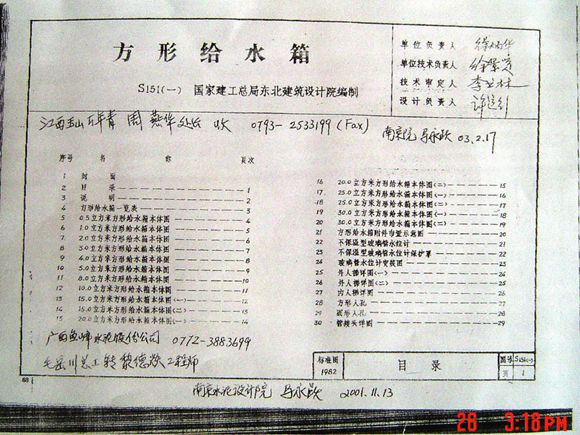 方形给水箱
S151(一) 国家建工总局东北建筑设计院编制
单位负责人
单位技术负责人
技术审定人
设计负责人
江西玉山万年青 周 收 0793-2533199 (Fax)
南京院 马永跃 03.2.17
序号 名 称 页次
1 封面
2 目录 1
3 说明 2
4 方形给水箱一览表 3
5 0.5立方米方形给水箱本体图 4
6 1.0立方米方形给水箱本体图 5
7 2.0立方米方形给水箱本体图 6
8 3.0立方米方形给水箱本体图 7
9 4.0立方米方形给水箱本体图 8
10 5.0立方米方形给水箱本体图 9
11 8.0立方米方形给水箱本体图 10
12 10.0立方米方形给水箱本体图 11
13 15.0立方米方形给水箱本体图(一) 12
14 15.0立方米方形给水箱本体图(二) 13
15 20.0立方米方形给水箱本体图(一) 14
16 20.0立方米方形给水箱本体图(二) 15
17 25.0立方米方形给水箱本体图(一) 16
18 25.0立方米方形给水箱本体图(二) 17
19 30.0立方米方形给水箱本体图(一) 18
20 30.0立方米方形给水箱本体图(二) 19
21 方形给水箱附件布置示意图 20
22 不保温型玻璃管水位计 21
23 不保温型玻璃管水位计保护罩 22
24 玻璃管水位计安装图 23
25 外人梯详图(一) 24
26 外人梯详图(二) 25
27 内人梯详图 26
28 方形人孔 27
29 圆形人孔 28
30 管接头详图 29
广西鱼峰水泥股份公司 0772-3883699
总工转 黎德 工程师
标准图
1982
目 录
图号 S151(一)
页 1
南京水泥设计院 马永跃 2001.11.13
28 3:18PM